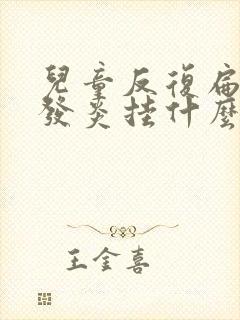 兒童反復扁
發炎挂什麼
王金喜